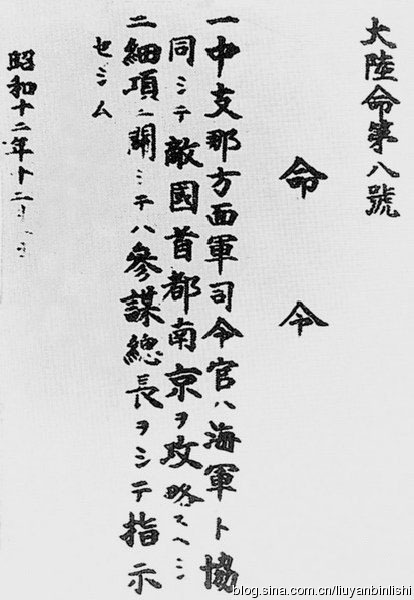 大陸命第八號
命令
一中支那方面軍司令官ハ海軍ト協
同シテ敵國首都南京ヲ攻略スヘシ
二細項ニ關シテハ參謀總長ヲシテ指示
セシム
昭和十二年十二月
blog.sina.com.cn/liuyanbinlishi